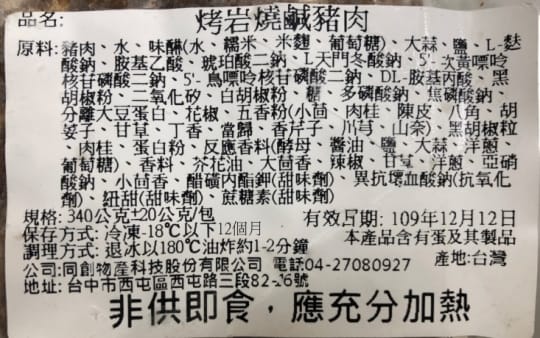 品名: 烤岩燒鹹豬肉
原料:豬肉、水、味醂(水、糯米、米麴、葡萄糖)、大蒜、鹽、L-麩
酸鈉、胺基乙酸、琥珀酸二鈉、L天門冬酸鈉、5'-次黃嘌呤
核苷磷酸二鈉、5'-鳥嘌呤核苷磷酸二鈉、DL-胺基丙酸、黑
胡椒粉、二氧化矽、白胡椒粉、糖、多磷酸鈉、焦磷酸鈉、
分離大豆蛋白、花椒、五香粉(小茴、肉桂、陳皮、八角、胡
荽子、甘草、丁香、當歸、香芹子、川芎、山柰)、黑胡椒粒
、肉桂、蛋白粉、反應香料(酵母、醬油、鹽、大蒜、洋蔥、
葡萄糖)、香料、芥花油、大茴香、辣椒、甘草、洋蔥、亞硝
酸鈉、小茴香、醋磺內酯鉀(甜味劑)、異抗壞血酸鈉(抗氧化
劑)、紐甜(甜味劑)、蔗糖素(甜味劑)
規格: 340公克±20公克/包 有效日期: 109年12月12日
保存方式: 冷凍-18℃以下12個月 本產品含有蛋及其製品
調理方式: 退冰以180℃油炸約1-2分鐘 產地:台灣
公司:同創物產科技股份有限公司 電話:04-27080927
地址: 台中市西屯區西屯路三段82-6號
非供即食，應充分加熱